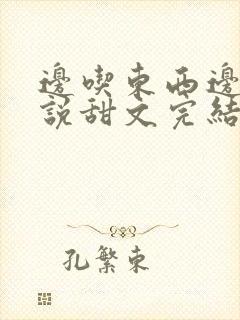 邊喫東西邊
說甜文完結
孔繁東